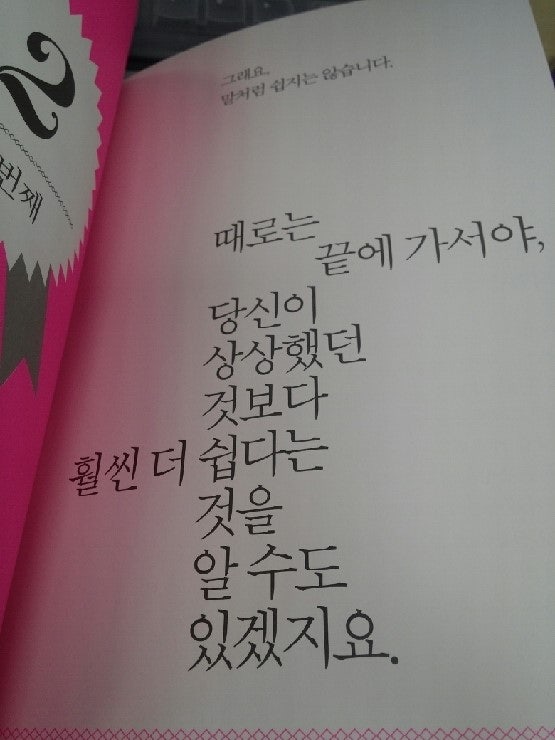 2
번째
그래요.
말처럼 쉽지는 않습니다.
때로는
끝에 가서야,
당신이
상상했던
것보다
훨씬 더 쉽다는
것을
알 수도
있겠지요.